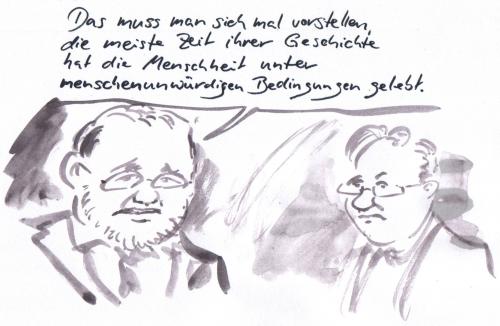 Das muss man sich mal vorstellen,
die meiste Zeit ihrer Geschichte
hat die Menschheit unter
menschenunwürdigen Bedingungen gelebt.